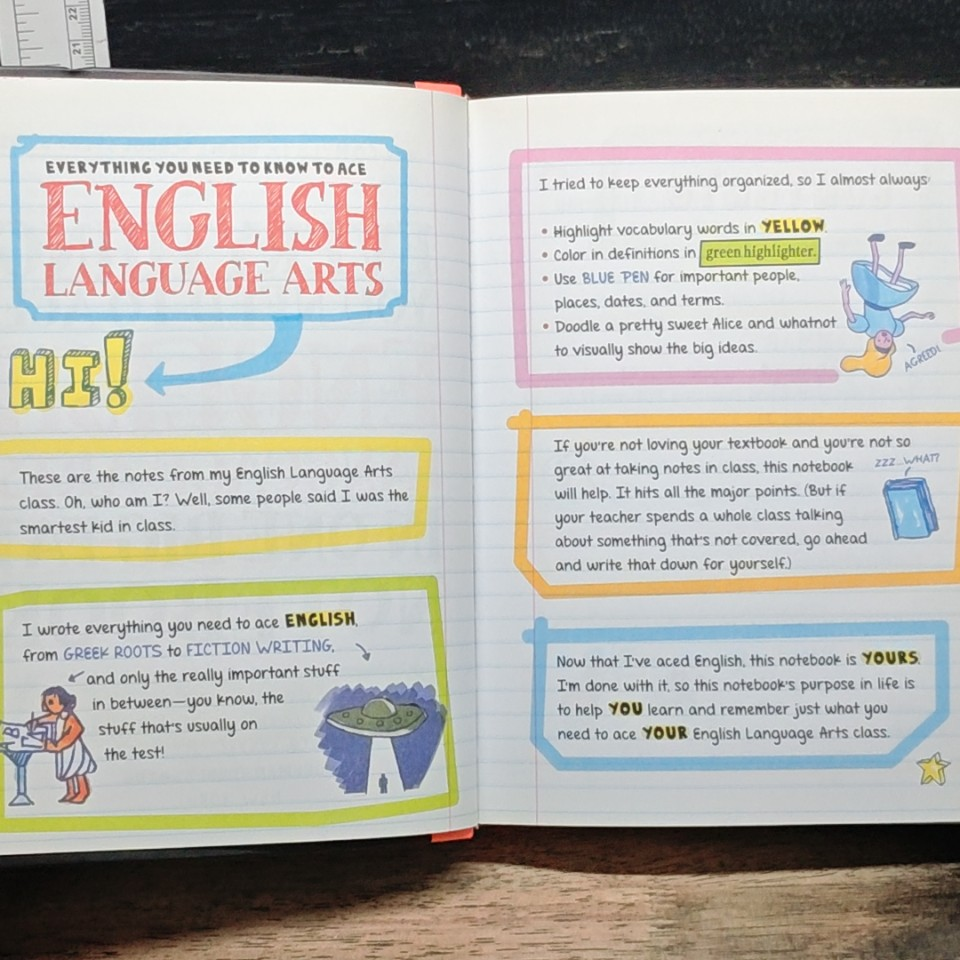 22
21
EVERYTHING YOU NEED TO KNOW TO ACE
ENGLISH
LANGUAGE ARTS
HI!
These are the notes from my English Language Arts
class. Oh, who am I? Well, some people said I was the
smartest kid in class.
I wrote everything you need to ace ENGLISH,
from GREEK ROOTS to FICTION WRITING,
and only the really important stuff
in between—you know, the
stuff that's usually on
the test!
I tried to keep everything organized, so I almost always:
• Highlight vocabulary words in YELLOW.
• Color in definitions in green highlighter.
• Use BLUE PEN for important people,
places, dates, and terms.
• Doodle a pretty sweet Alice and whatnot
to visually show the big ideas.
AGREED!
If you're not loving your textbook and you're not so
great at taking notes in class, this notebook
will help. It hits all the major points. (But if
your teacher spends a whole class talking
about something that's not covered, go ahead
and write that down for yourself.)
ZZZ...WHAT?
Now that I've aced English, this notebook is YOURS.
I'm done with it, so this notebook's purpose in life is
to help YOU learn and remember just what you
need to ace YOUR English Language Arts class.